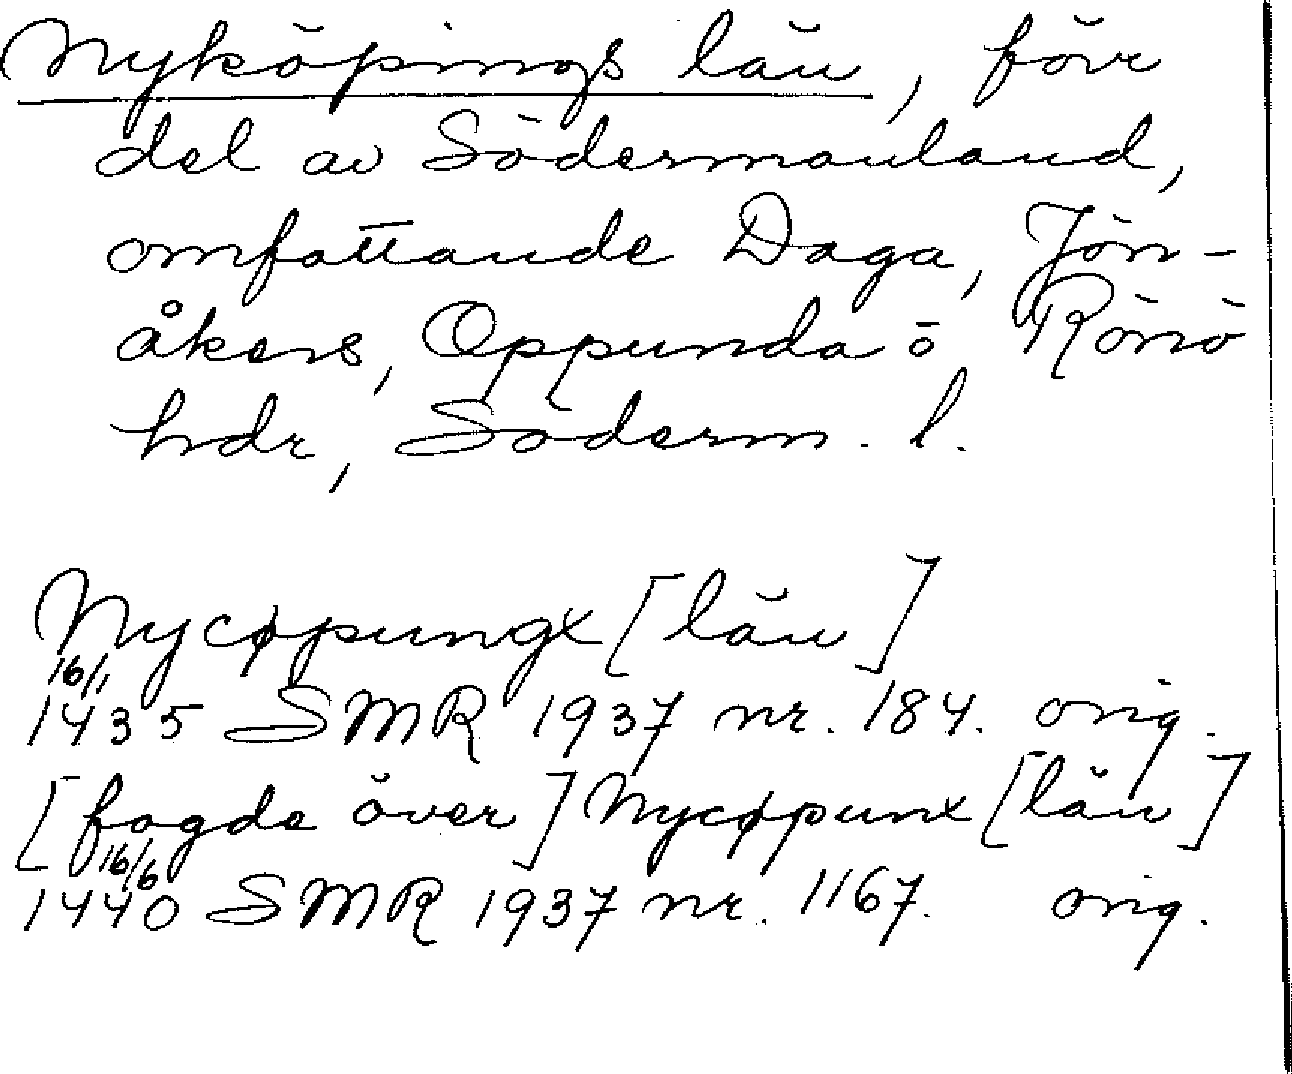 Nyköpings län, förr
del av Södermanland,
omfattande Daga, Jön-
åkers, Oppunda o Rönö
hdr, Söderm. l.
Nycøpungx [län]
16/1
1435 SMR 1937 nr. 184. orig.
[fogde över] Nycøpunx [län]
16/6
1440 SMR 1937 nr. 1167. orig.